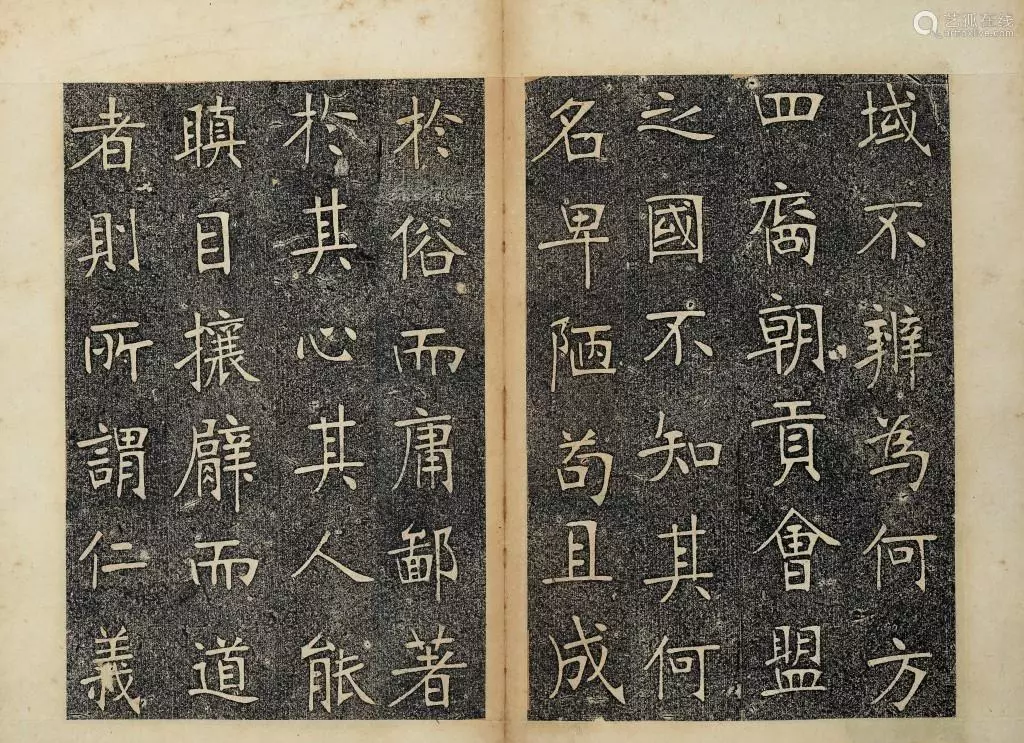 域不辨為何方
四裔朝貢會盟
之國不知其何
名卑陋苟且成
於俗而庸鄙著
於其心其人能
瞋目攘臂而道
者則所謂仁義
艺狐在线
artfoxlive.com